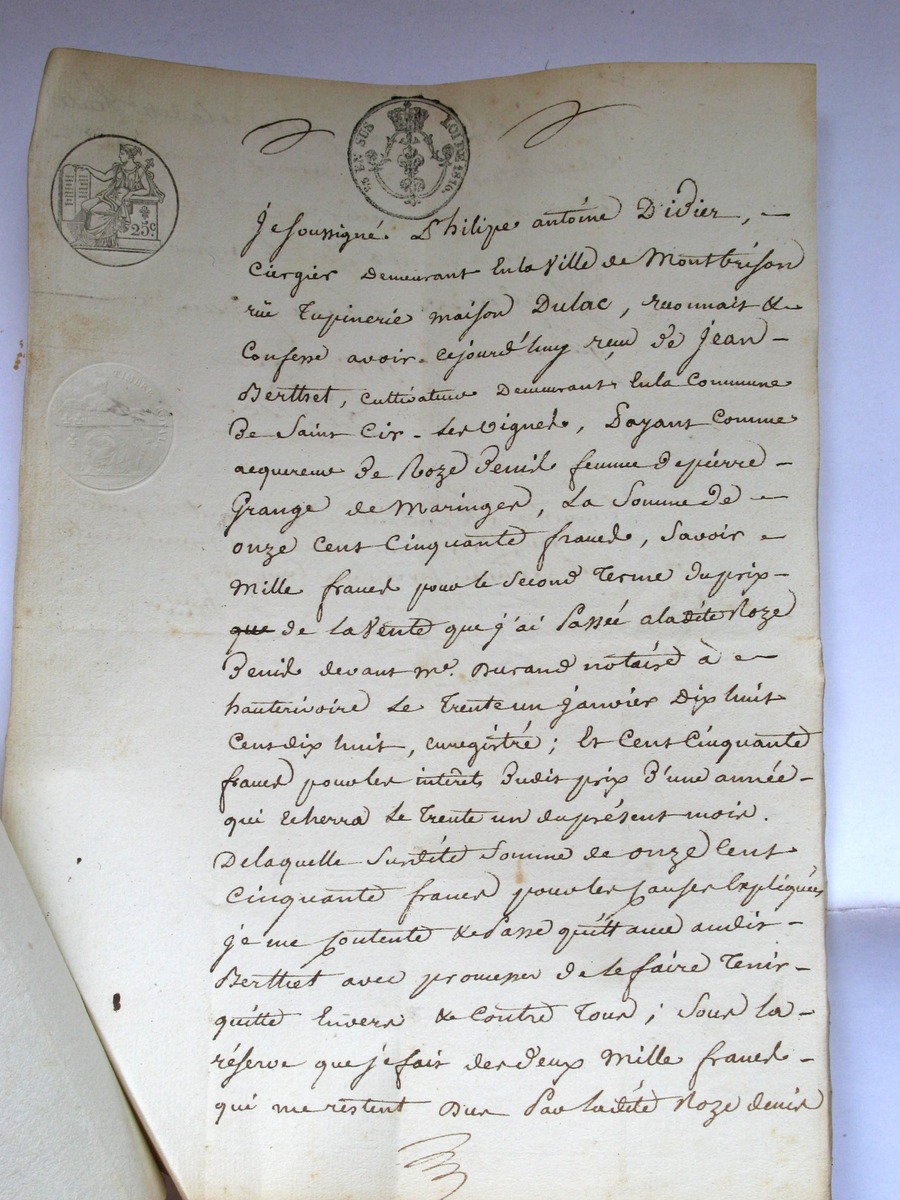 EN SUS LOI DE 1816
25c
Je soussigné Philipe antoine Didier, -
Ciergier Demeurant En la Ville de Montbrison
rüe Tupinerie maison Dulac, reconnais &
Confesse avoir cejourd'huy reçu de Jean -
Berthet, cultivateur Demeurant En la Commune
De Saint Cir-les vignes, Payant Comme
acquereur De Roze Denis femme de pierre -
Grange de Maringes, La Somme De -
onze Cent Cinquante francs, Savoir -
Mille francs pour le Second Terme du prix -
que de la Vente que j'ai Passée a la dite Roze
Denis devant me. Durand notaire à -
hauterivoire Le Trente un janvier Dix huit
Cent dix huit, enregistré; Et Cent Cinquante
francs pour les interets Dudit prix D'une année -
qui Echerra Le Trente un du présent mois.
De laquelle Susdite Somme de onze Cent
Cinquante francs pour les Causes Expliquées
je me Contente & Passe quittance audit -
Berthet avec promesse de le faire Tenir -
quitte Envers & Contre Tous; Sous la -
réserve que je fais des Deux Mille francs -
qui me restent Dus Par la dite Roze denis